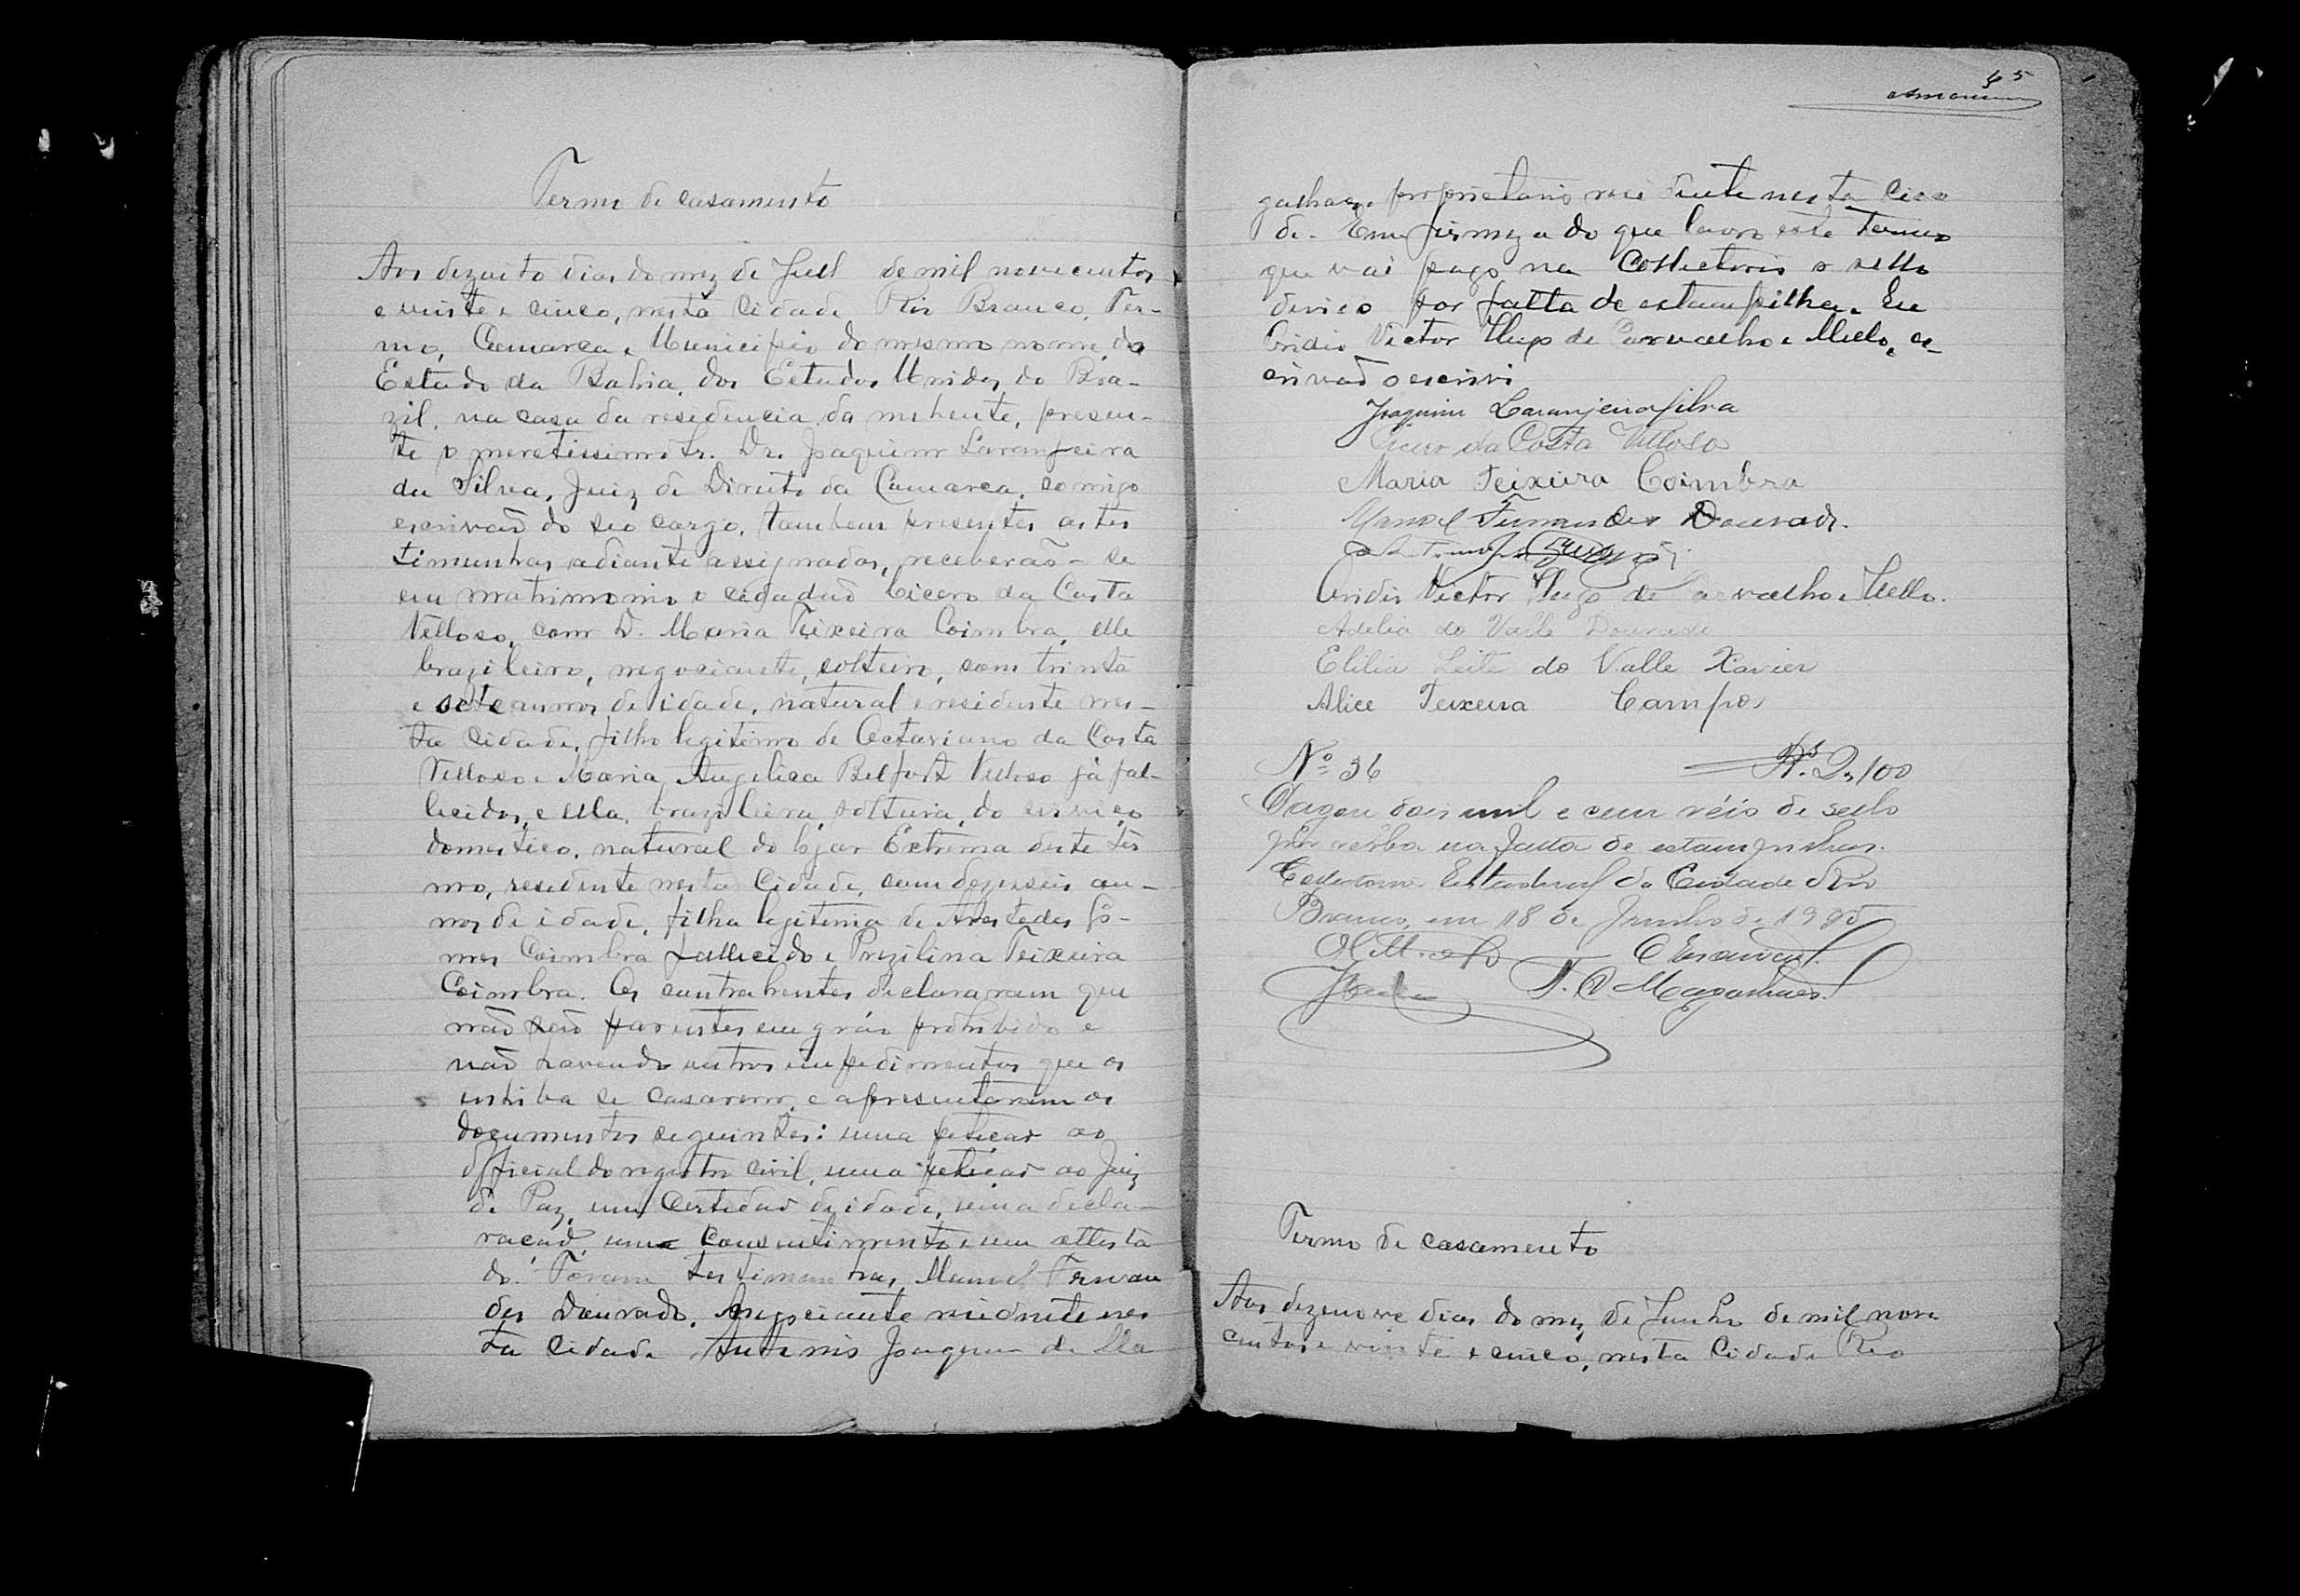 Termo de casamento
Aos dezoito dias do mez de de mil novecentos
e vinte e cinco, nesta Cidade Rio Branco, Ter-
mo, Comarca e Municipio do mesmo nome do
Estado da Bahia, dos Estados Unidos do Bra-
zil, na casa da residencia da nubente, presen-
te o meretissimo Sr. Dr. Joaquim Laranjeira
da Silva, Juiz de Direito da Comarca, comigo
escrivão do seo cargo, tambem presentes as tes
timunhas adiante assignadas, receberão-se
em matrimonio o cidadão Cicero da Costa
Velloso, com D. Maria Teixeira Coimbra, elle
brazileiro, negociante, solteiro, com trinta
e sete annos de idade, natural e residente nes-
ta Cidade, filho legitimo de Octaviano da Costa
Velloso e Maria Angelica Belfort Velloso já fal-
lecidos, e ella, brazileira, solteira, do serviço
domestico, natural do lgar Extrema deste ter
mo, residente nesta Cidade, com dezesseis an-
nos de idade, filha legitima de Go-
mes Coimbra fallecido e Teixeira
Coimbra. Os contrahentes declararam que
não são parentes em gráo prohibido e
não havendo outros impedimentos que os
inhiba se casarem, e apresentaram os
documentos seguintes: uma petição ao
Official do registro civil, uma petição ao Juiz
de Paz, uma Certidão de idade, uma decla-
ração, um Consentimento e um attesta
do. Foram testimunhas, Manoel Fernan
des Dourado, negociante residente nes
ta Cidade Antonio Joaquim de Ma
65
galhães, proprietario residente nesta Cida
de. Em firmeza do que lavro este Termo
que vai pago na Collectoria o sello
devido por falta de estampilha. Eu
Victor Hugo de Carvalho e Mello, es-
crivão o escrivi
Joaquim Laranjeira Silva
Cicero da Costa Velloso
Maria Teixeira Coimbra
Manoel Fernandes Dourado.
Victor Hugo de Carvalho e Mello.
Adelia do Valle Dourado
Leite do Valle Xavier
Alice Teixeira Campos
Nº 36 Rs. 2,100
Pagou dois mil e cem réis de sello
por verba na falta de estampilhas.
Collectoria Estadual da Cidade Rio
Branco, em 18 de Junho de 1925
O Escrivão
Magalhães.
Termo de casamento
Aos dezenove dias do mez de Junho de mil nove
centos e vinte e cinco, nesta Cidade Rio